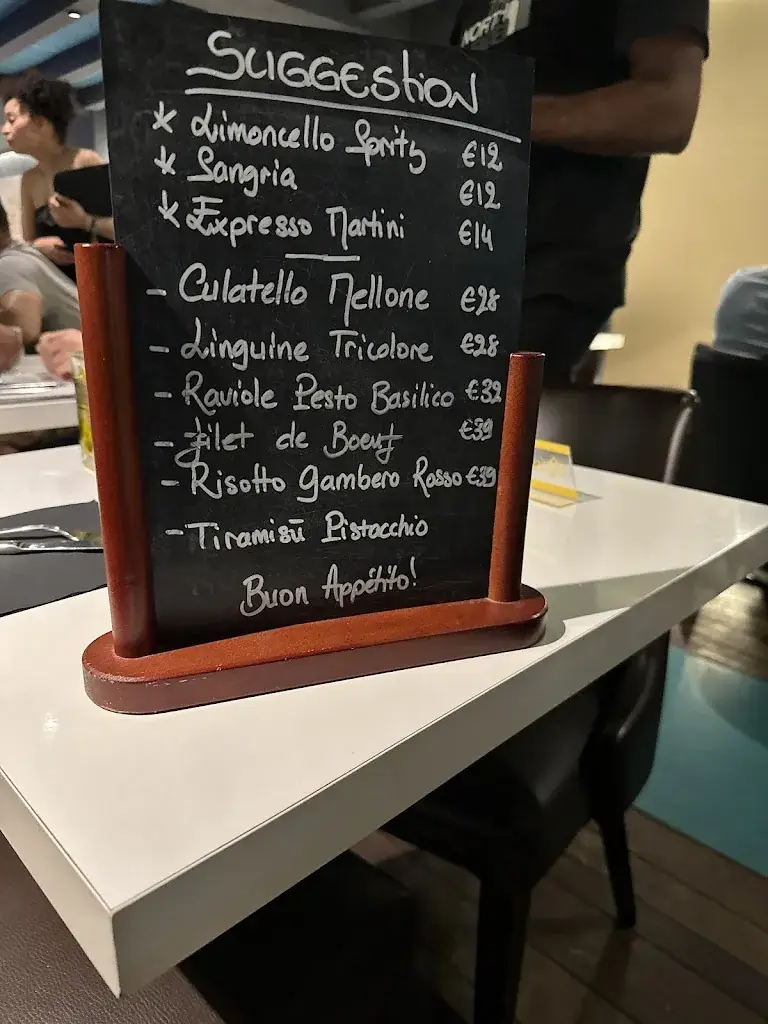 SUGGEStiON
* Limoncello Spritz €12
* Sangria €12
* Expresso Martini €14
- Culatello Mellone €28
- Linguine Tricolore €28
- Raviole Pesto Basilico €32
- filet de Boeuf €39
- Risotto gambero Rosso €39
- Tiramisū Pistacchio
Buon Appétito!
NORTH